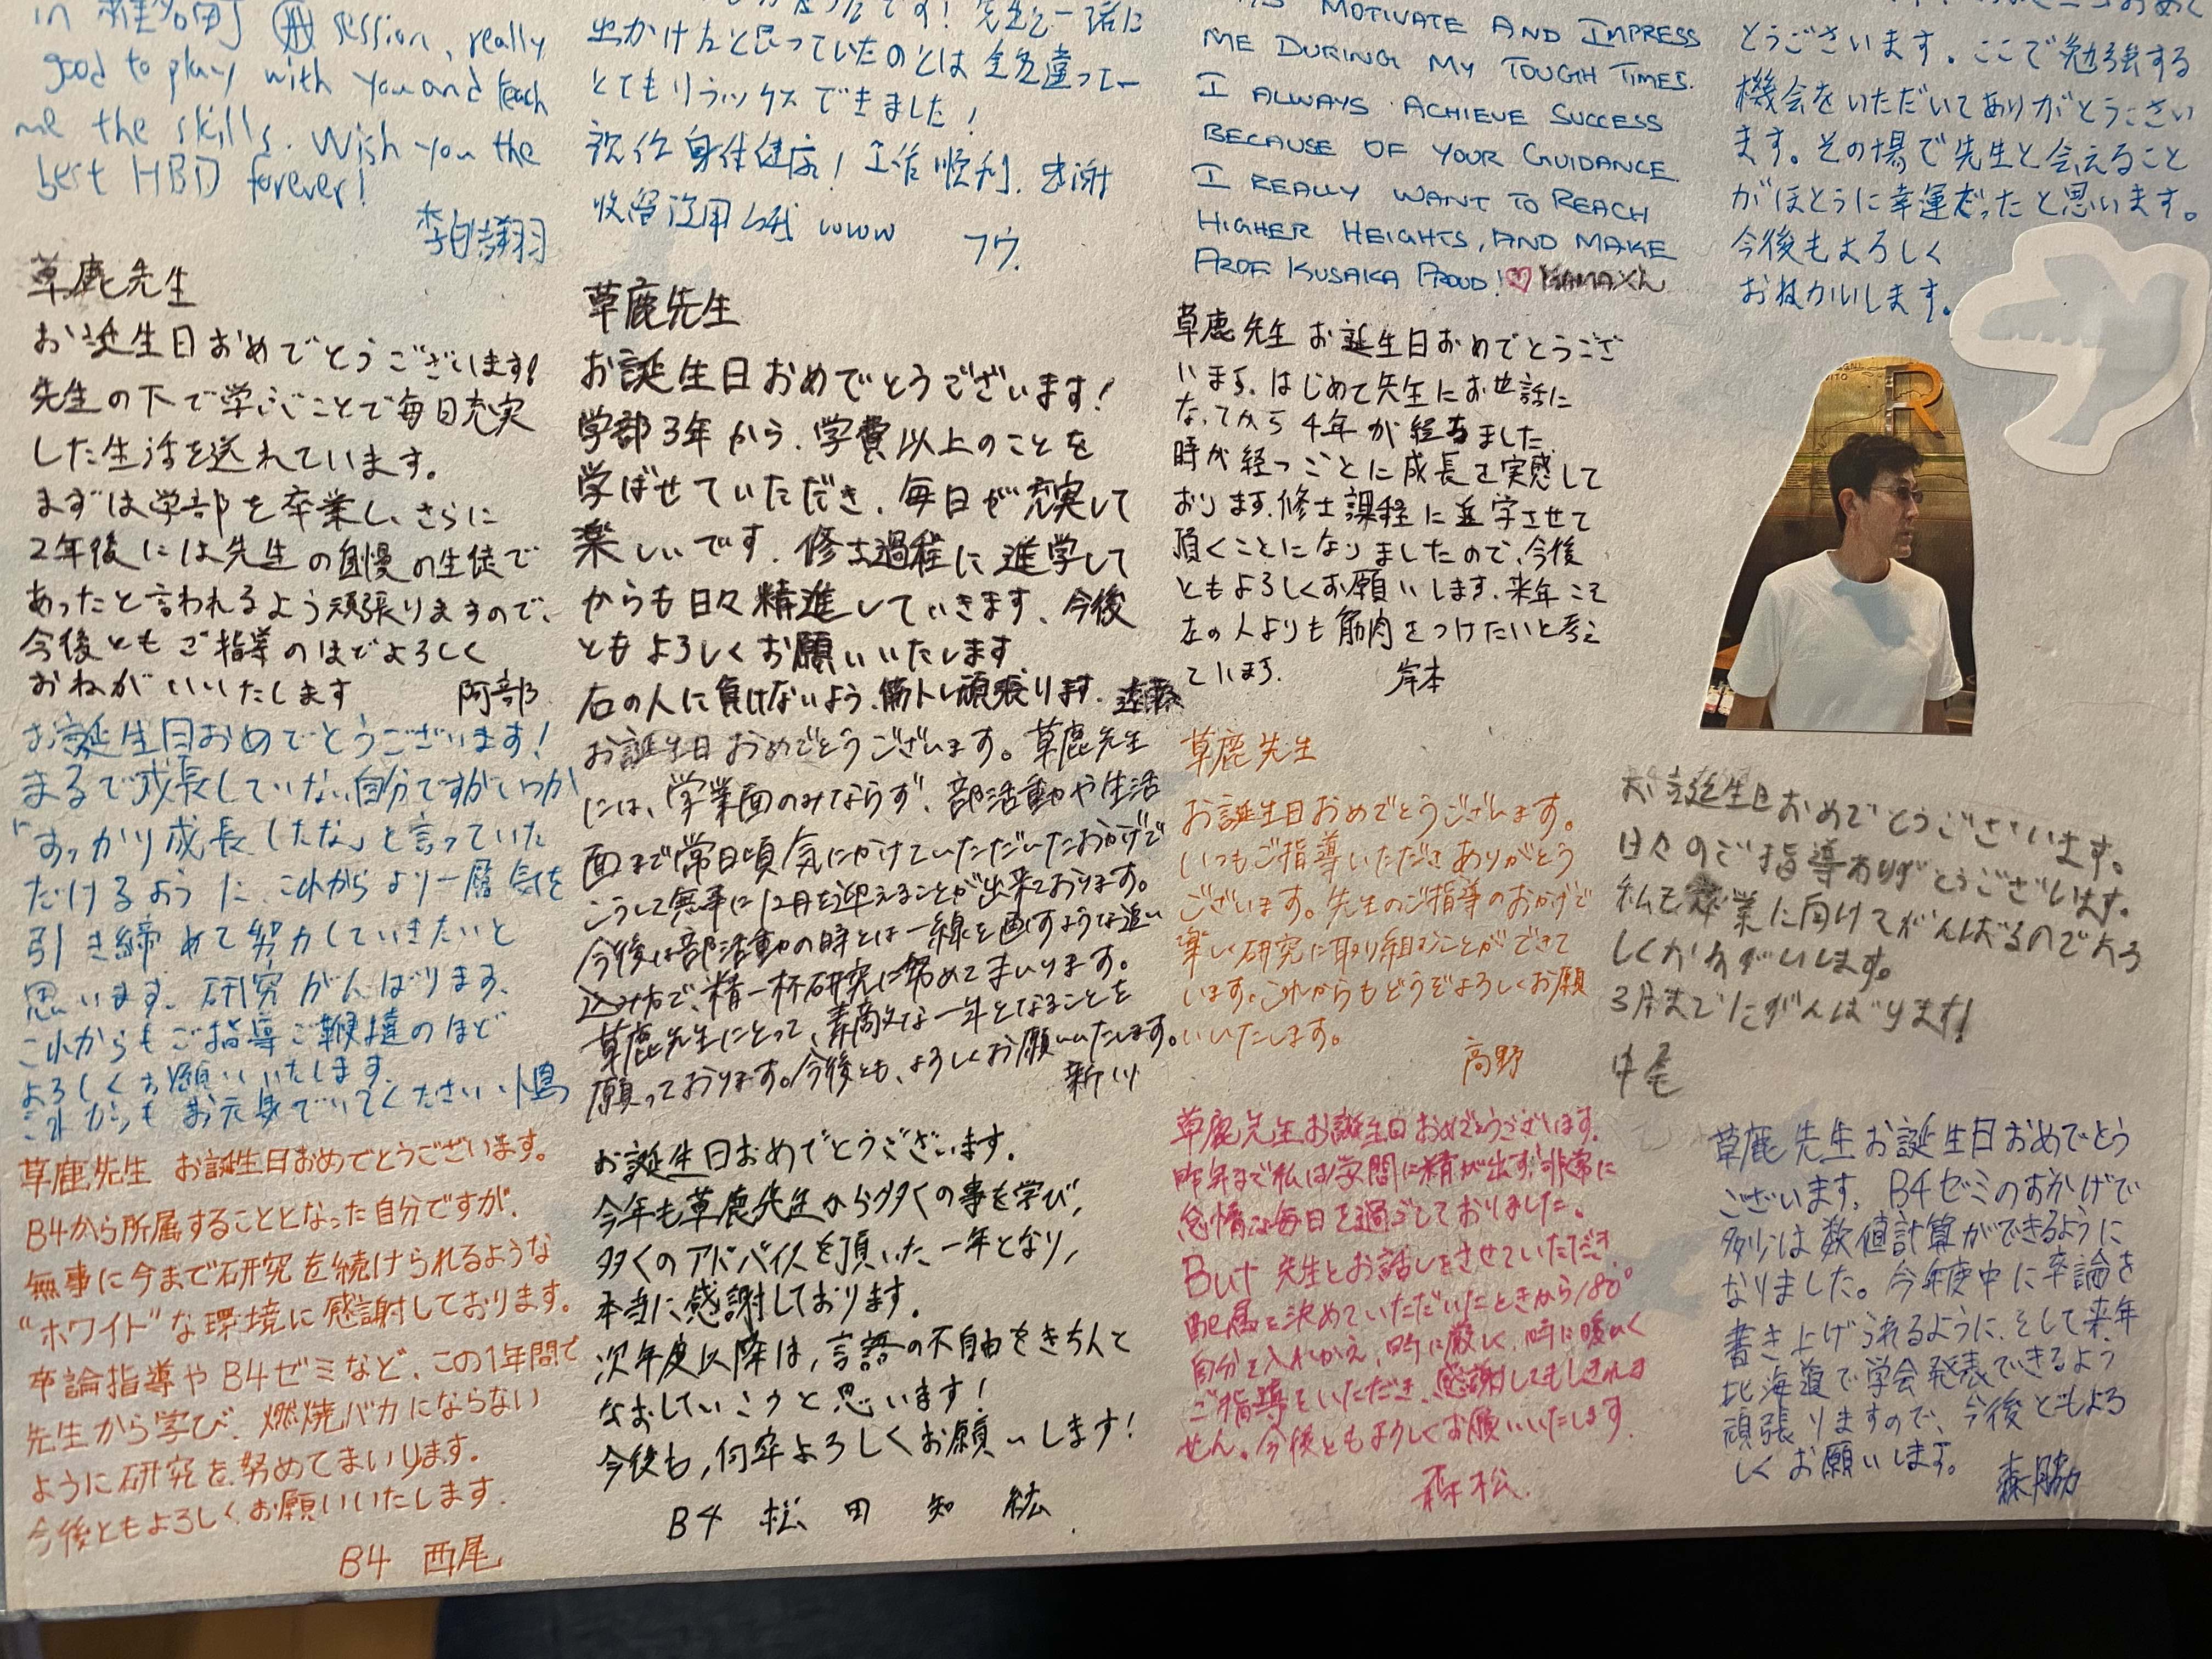 in 稚名町 session, really
good to play with you and teach
me the skills. Wish you the
best HBD forever!
出かけたと思っていたのとは全然違って一
とてもリラックスできました!
祝你身体健康! 工作順利. 感謝
收留没用的我 wwww フウ.
MOTIVATE AND IMPRESS
ME DURING MY TOUGH TIMES.
I ALWAYS ACHIEVE SUCCESS
BECAUSE OF YOUR GUIDANCE.
I REALLY WANT TO REACH
HIGHER HEIGHTS, AND MAKE
PROF. KUSAKA PROUD! ♡
とうございます。ここで勉強する
機会をいただいてありがとうござい
ます。その場で先生と会えること
がほとうに幸運だったと思います。
今後もよろしく
おねがいします。
草鹿先生
お誕生日おめでとうございます!
先生の下で学ぶことで毎日充実
した生活を送れています。
まずは学部を卒業し、さらに
2年後には先生の自慢の生徒で
あったと言われるよう頑張りますので、
今後ともご指導のほどよろしく
おねがいいたします 阿部
草鹿先生
お誕生日おめでとうございます!
学部3年から、学費以上のことを
学ばせていただき、毎日が充実して
楽しいです. 修士過程に進学して
からも日々精進していきます、今後
ともよろしくお願いいたします
右の人に負けないよう、筋トレ頑張ります. 遠藤
草鹿先生 お誕生日おめでとうござ
います. はじめて先生にお世話に
なってから4年が経ちました.
時が経つごとに成長を実感して
おります.修士課程に進学させて
頂くことになりましたので、今後
ともよろしくお願いします.来年こそ
左の人よりも筋肉をつけたいと考え
ています. 岸本
R
お誕生日おめでとうございます!
まるで成長していない自分ですがいつか
「すっかり成長したな」と言っていた
だけるように、これからより一層気を
引き締めて努力していきたいと
思います. 研究がんばります、
これからもご指導ご鞭撻のほど
よろしくお願いいたします.
これからもお元気でいてください 小島
お誕生日おめでとうございます。草鹿先生
には、学業面のみならず、部活動や生活
面まで常日頃気にかけていただいたおかげで
こうして無事に12月を迎えることが出来ております。
今後は部活動の時とは一線を画すような追い
込み方で、精一杯研究に努めてまいります。
草鹿先生にとって、素敵な一年となることを
願っております。今後とも、よろしくお願いいたします。
新川
草鹿先生
お誕生日おめでとうございます。
いつもご指導いただきありがとう
ございます。先生のご指導のおかげで
楽しく研究に取り組むことができて
います。これからもどうぞよろしくお願
いいたします。
高野
お誕生日おめでとうございます。
日々のご指導ありがとうございます。
私も卒業に向けてがんばるのでよろ
しくおねがいします。
3月まで
中尾
草鹿先生 お誕生日おめでとうございます。
B4から所属することとなった自分ですが、
無事に今まで研究を続けられるような
“ホワイト”な環境に感謝しております。
卒論指導やB4ゼミなど、この1年間で
先生から学び、燃焼バカにならない
ように研究を努めてまいります。
今後ともよろしくお願いいたします.
B4 西尾
お誕生日おめでとうございます.
今年も草鹿先生から多くの事を学び,
多くのアドバイスを頂いた一年となり,
本当に感謝しております.
次年度以降は,言語の不自由をきちんと
なおしていこうと思います!
今後も,何卒よろしくお願いします!
B4 松田 知紘
草鹿先生お誕生日おめでとうございます.
昨年まで私は学問に精が出ず、非常に
怠惰な毎日を過ごしておりました。
But 先生とお話しをさせていただき,
配属を決めていただいたときから180°
自分を入れかえ、時に厳しく、時に暖かく
ご指導をいただき、感謝してもしきれま
せん。今後ともよろしくお願いいたします.
森松.
草鹿先生お誕生日おめでとう
ございます。B4ゼミのおかげで
多少は数値計算ができるように
なりました。今年度中に卒論を
書き上げられるように、そして来年
北海道で学会発表できるよう
頑張りますので、今後ともよろ
しくお願いします。 森脇